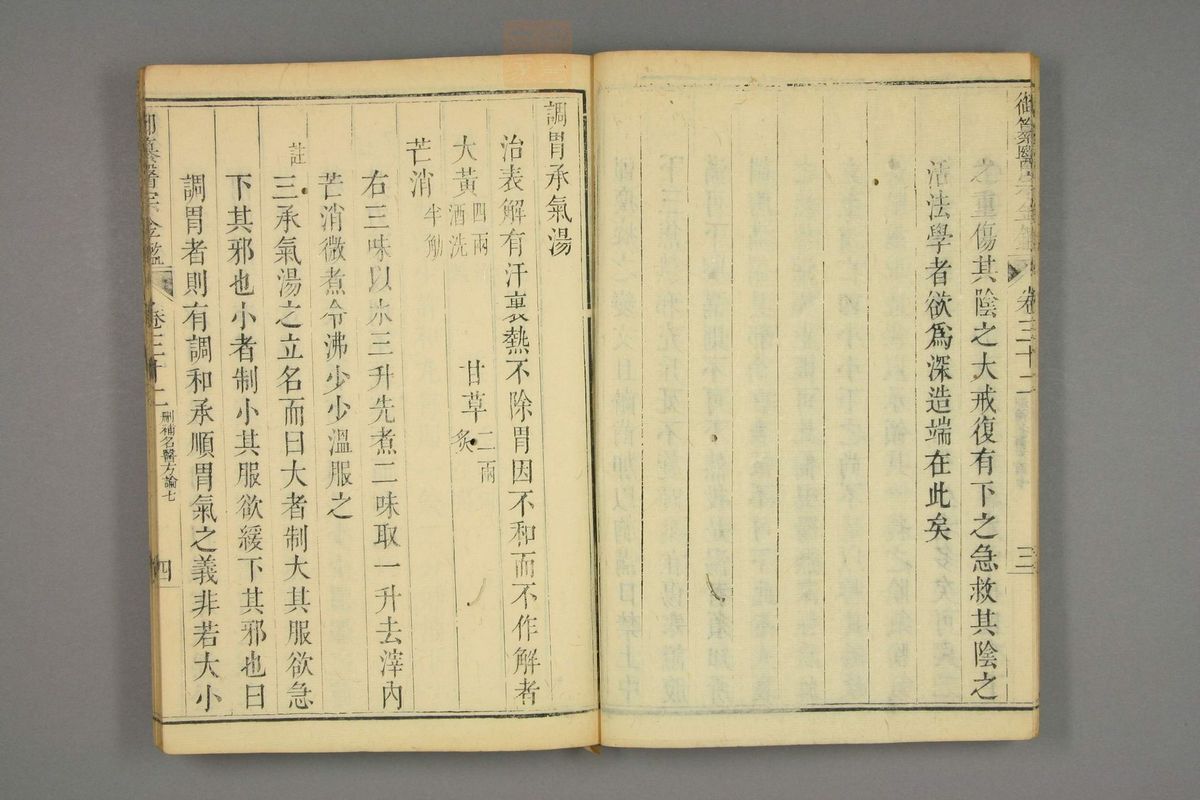 御纂醫宗金鑑 卷三十二 三
之重傷其陰之大戒復有下之急救其陰之
活法學者欲爲深造端在此矣
調胃承氣湯
治表解有汗裏熱不除胃因不和而不作解者
大黃四兩酒洗 甘草二兩炙
芒消半觔
右三味以水三升先煮二味取一升去滓內
芒消微煮令沸少少溫服之
註三承氣湯之立名而曰大者制大其服欲急
下其邪也小者制小其服欲緩下其邪也曰
調胃者則有調和承順胃氣之義非若大小
御纂醫宗金鑑 卷三十二 刪補名醫方論七 四